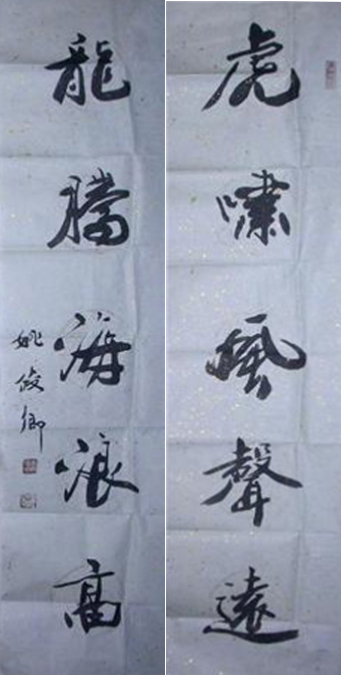 虎嘯風聲遠
龍騰海浪高
姚俊卿